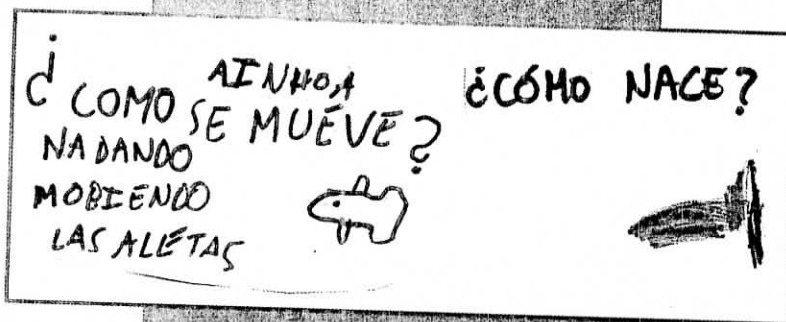 AINHOA
¿COMO SE MUÉVE?
NADANDO
MOBIENDO
LAS ALÉTAS
¿CÓMO NACE?